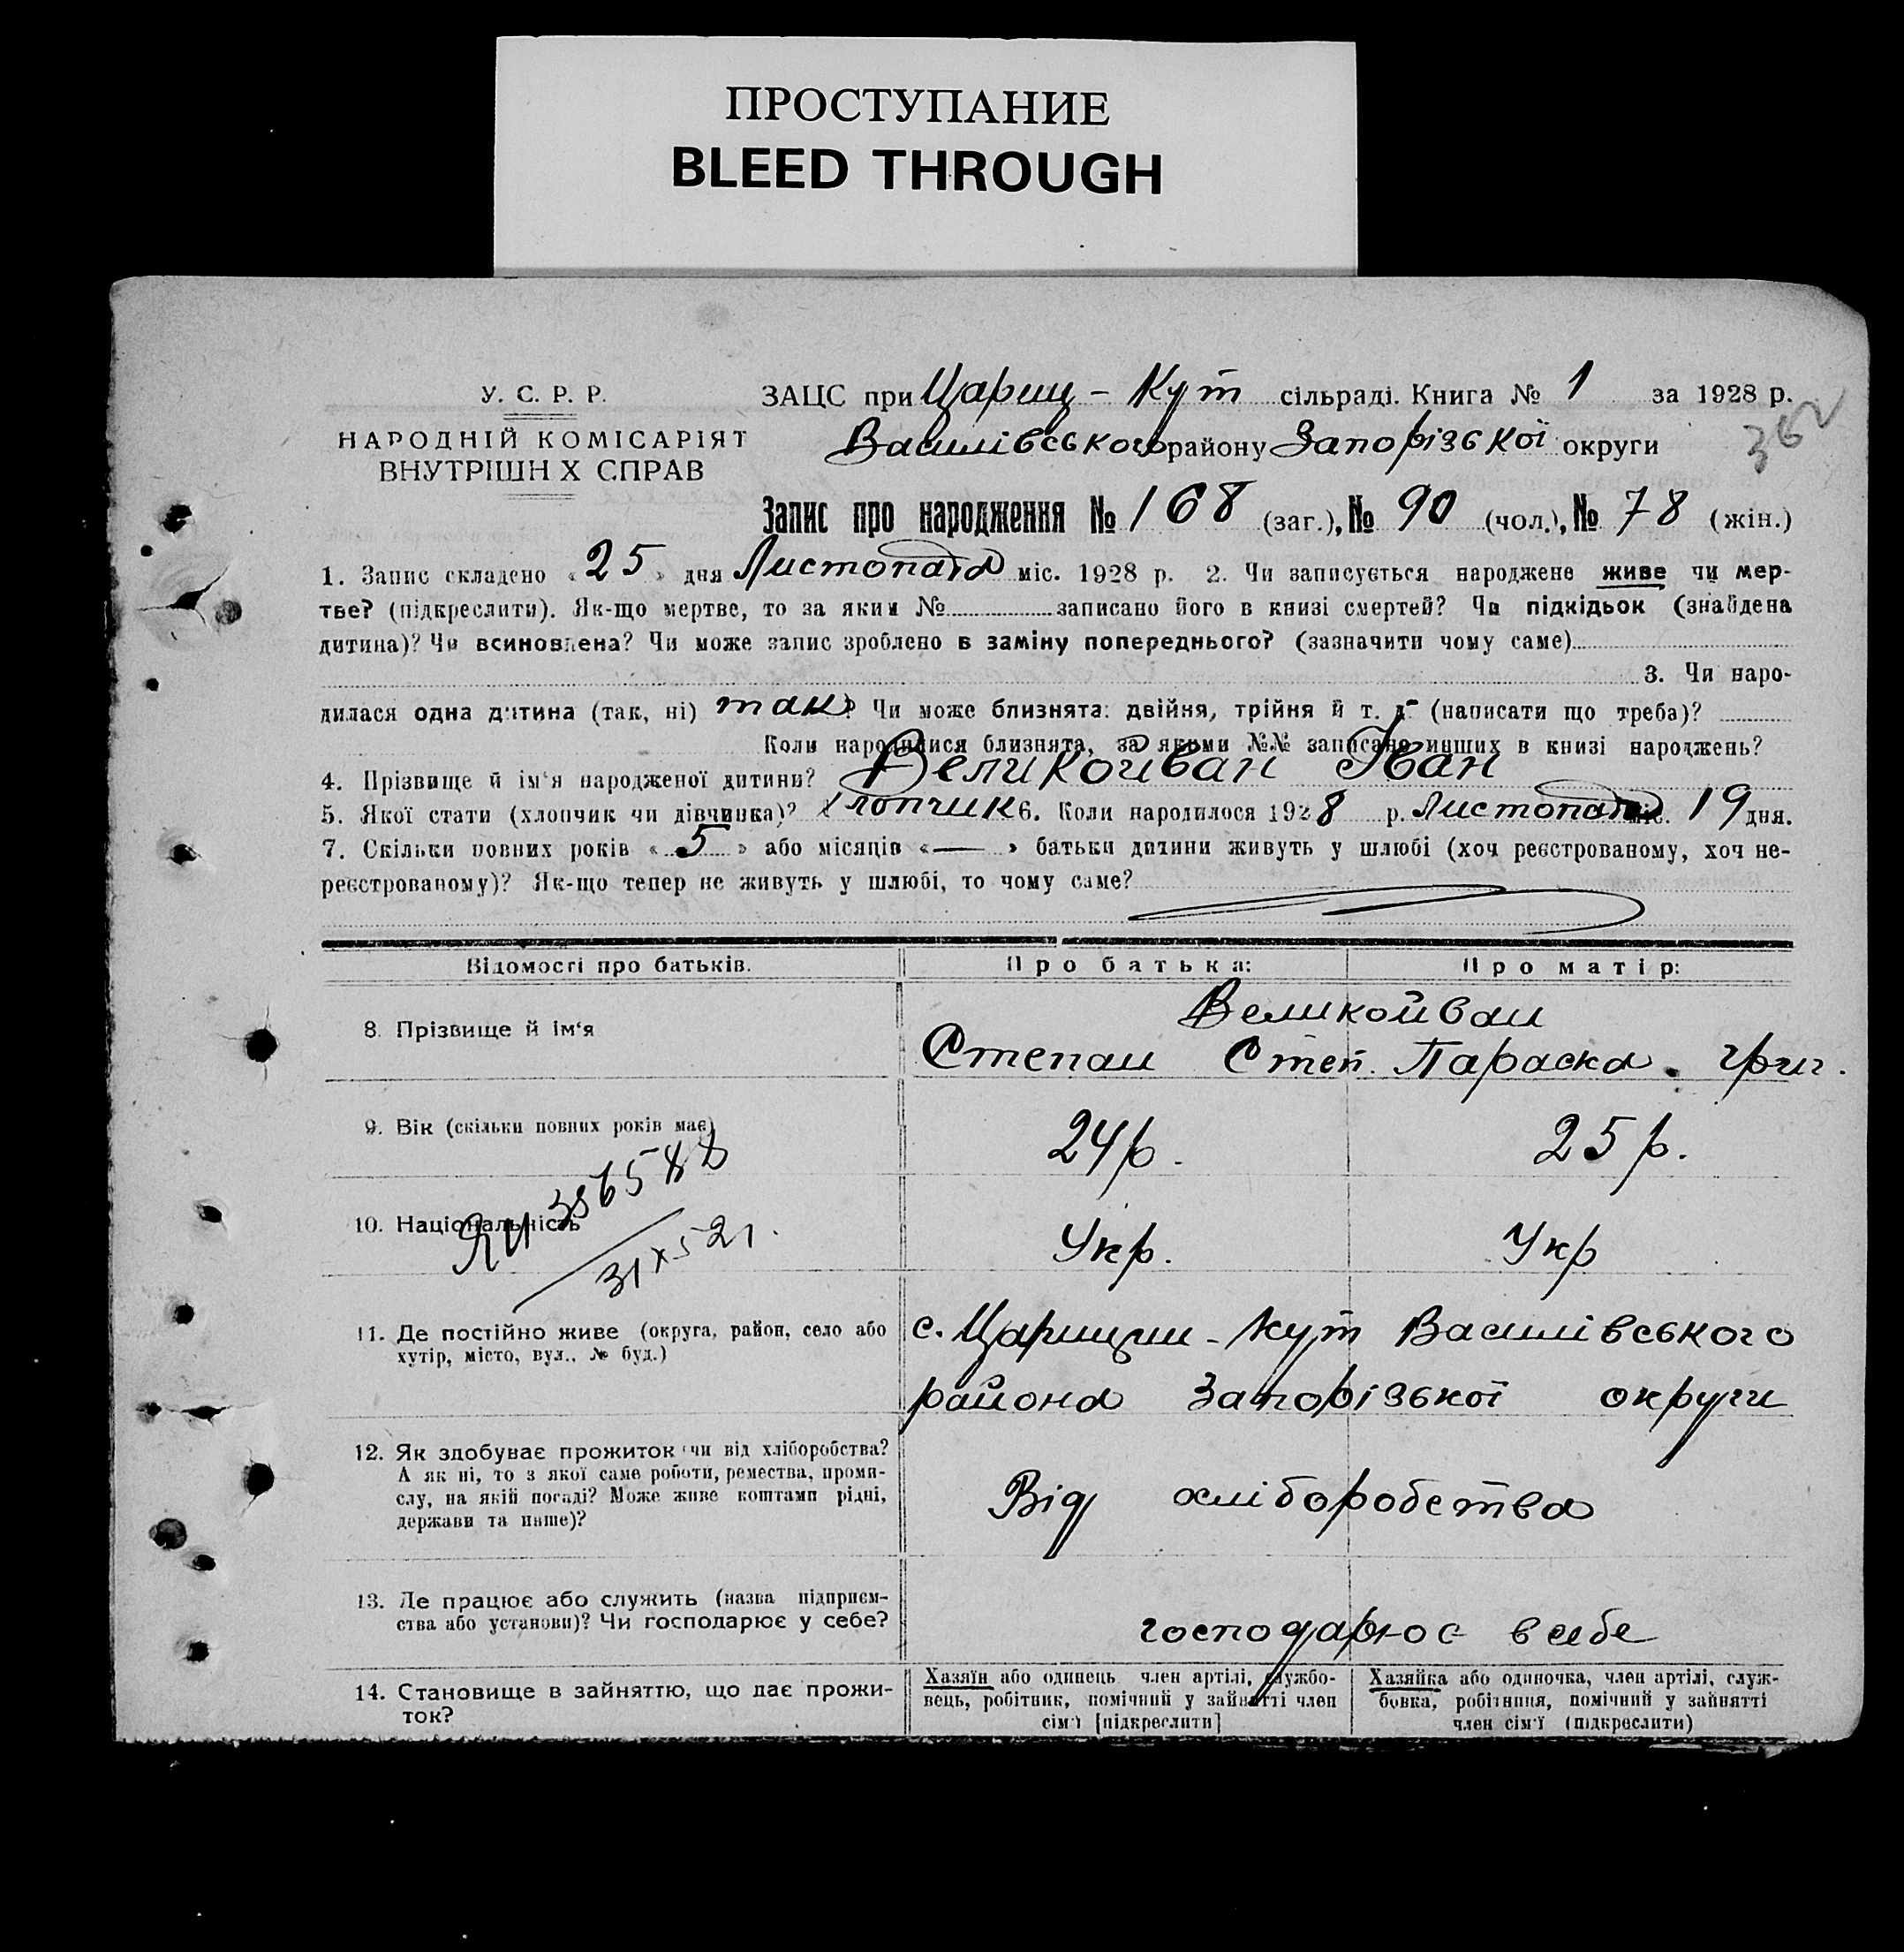 ПРОСТУПАНИЕ
BLEED THROUGH
У. С. Р. Р.
НАРОДНІЙ КОМІСАРІЯТ
ВНУТРІШН Х СПРАВ
ЗАЦС при Цариц - Кут сільраді. Книга № 1 за 1928 р.
362
Василівського району Запорізької округи
Запис про народження № 168 (заг.), № 90 (чол.), № 78 (жін.)
1. Запис складено « 25 » дня Листопада міс. 1928 р. 2. Чи записується народжене живе чи мер-
тве? (підкреслити). Як-що мертве, то за яким № записано його в книзі смертей? Чи підкідьок (знайдена
дитина)? Чи всиновлена? Чи може запис зроблено в заміну попереднього? (зазначити чому саме)
3. Чи наро-
дилася одна дитина (так, ні) так? Чи може близнята: двійня, трійня й т. д. (написати що треба)?
Коли народилися близнята, за якими №№ записано инших в книзі народжень?
4. Прізвище й ім'я народженої дитини? Великойван Іван
5. Якої стати (хлопчик чи дівчинка)? хлопчик 6. Коли народилося 1928 р. Листопада міс. 19 дня.
7. Скільки повних років « 5 » або місяців « — » батьки дитини живуть у шлюбі (хоч реєстрованому, хоч не-
реєстрованому)? Як-що тепер не живуть у шлюбі, то чому саме?
Відомості про батьків.
Про батька:
Про матір:
8. Прізвище й ім'я
Великойван
Степан Степ. Параска. Григ.
9. Вік (скільки повних років має)
24 р.
25 р.
10. Національність
Укр.
Укр
11. Де постійно живе (округа, район, село або
хутір, місто, вул., № буд.)
с. Царицин - Кут Василівського
района Запорізької округи
12. Як здобуває прожиток чи від хліборобства?
А як ні, то з якої саме роботи, ремества, проми-
слу, на якій посаді? Може живе коштами рідні,
держави та инше)?
Від хліборобства
13. Де працює або служить (назва підприєм-
ства або установи)? Чи господарює у себе?
господарює в себе
14. Становище в зайняттю, що дає прожи-
ток?
Хазяїн або одинець член артілі, службо-
вець, робітник, помічний у зайнятті член
сім'ї [підкреслити]
Хазяйка або одиночка, член артілі, служ-
бовка, робітниця, помічний у зайнятті
член сім'ї (підкреслити)